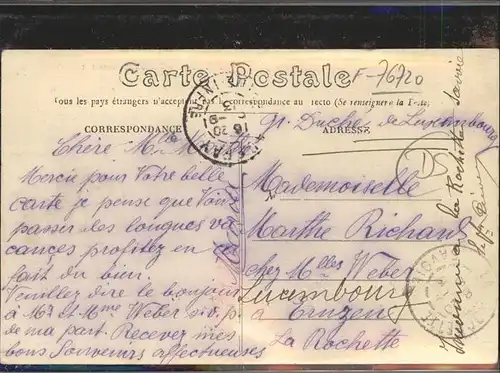 Carte Postale
F-76720
Tous les pays étrangers n'acceptent pas la correspondance au recto (Se renseigner à la Poste)
CORRESPONDANCE
ADRESSE
Gr. Duché de Luxembourg
DS
Chère Mlle M
Mercie pour Votre belle
carte je pense que Vous
passer des longues va
cances profitez en
fait du bien.
Veuillez dire le bonjour
à Mr et Mme Weber s.v.p.
de ma part. Recevez mes
bons Souvenirs affectueuses
Mademoiselle
Marthe Richard
chez Mlles Weber
Luxembourg
à
La Rochette
la Rochette